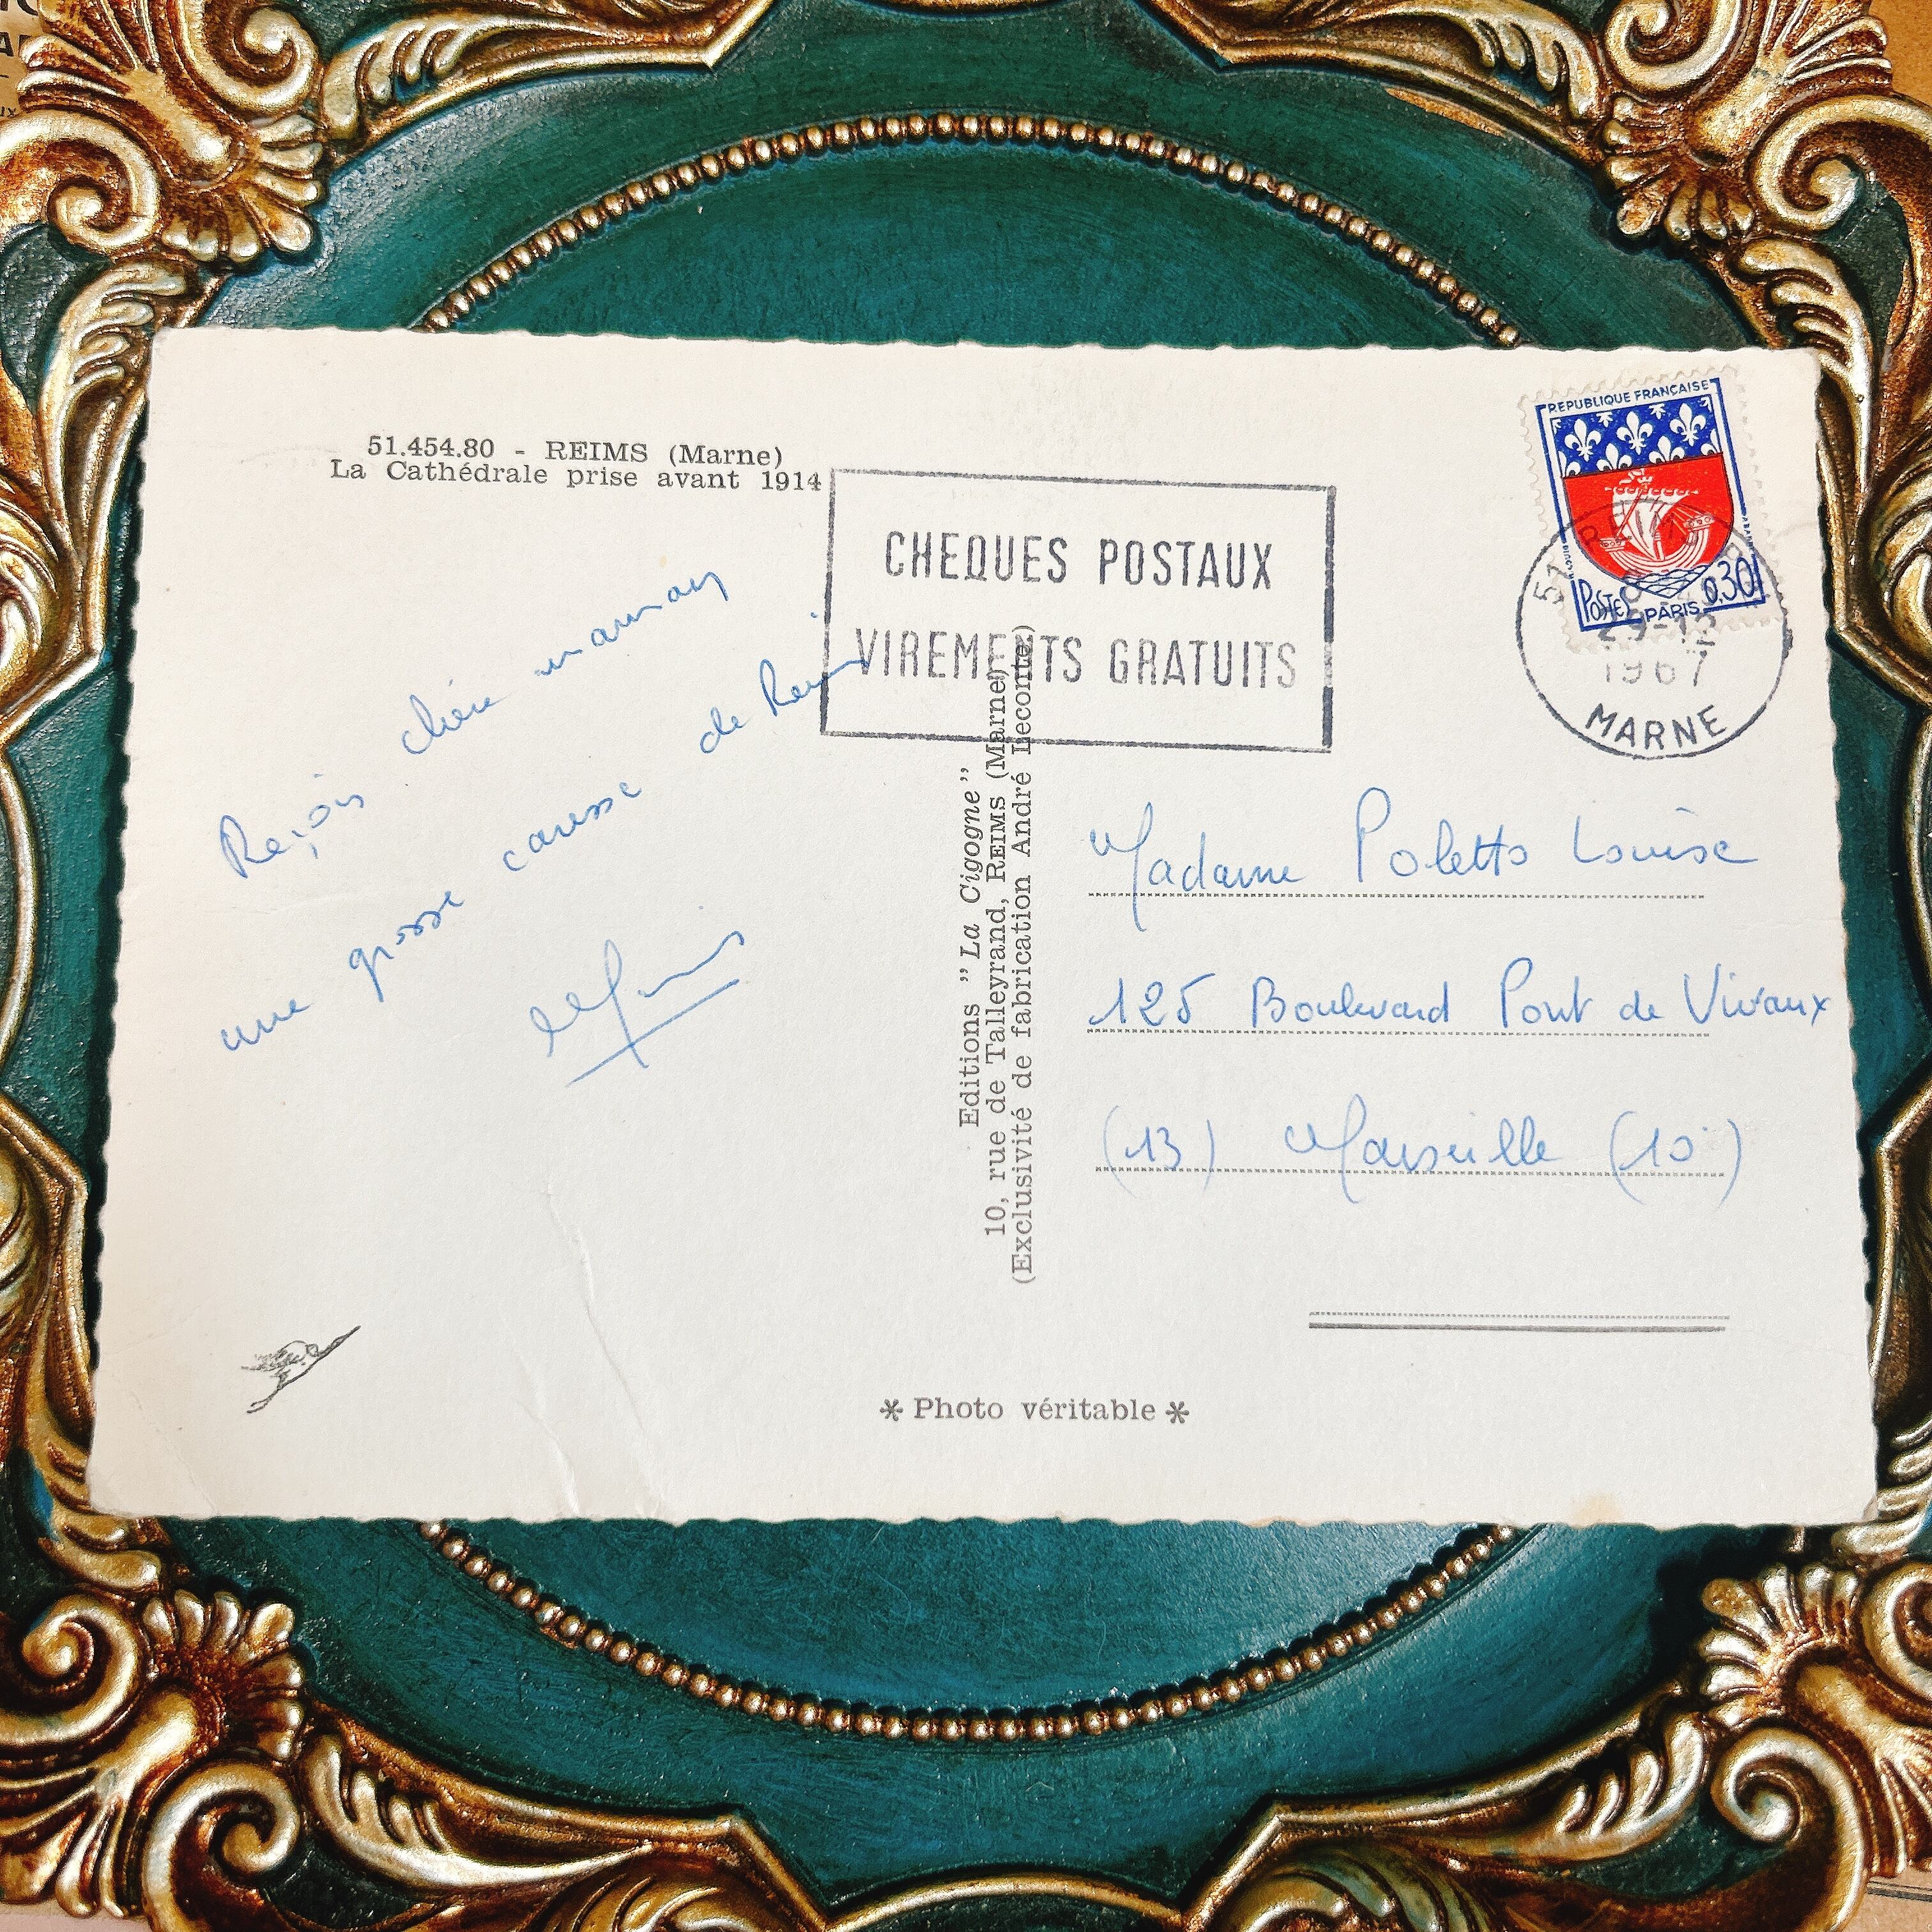 51.454.80 - REIMS (Marne)
La Cathédrale prise avant 1914
Reçois chère maman
une grosse caresse de Reims
CHEQUES POSTAUX
VIREMENTS GRATUITS
REPUBLIQUE FRANÇAISE
POSTES PARIS 0,30
51 REIMS
29-12
1967
MARNE
Editions "La Cigogne"
10, rue de Talleyrand, REIMS (Marne)
(Exclusivité de fabrication André Leconte)
Madame Poletto Louise
125 Boulevard Pont de Vivaux
(13) Marseille (10)
* Photo véritable *